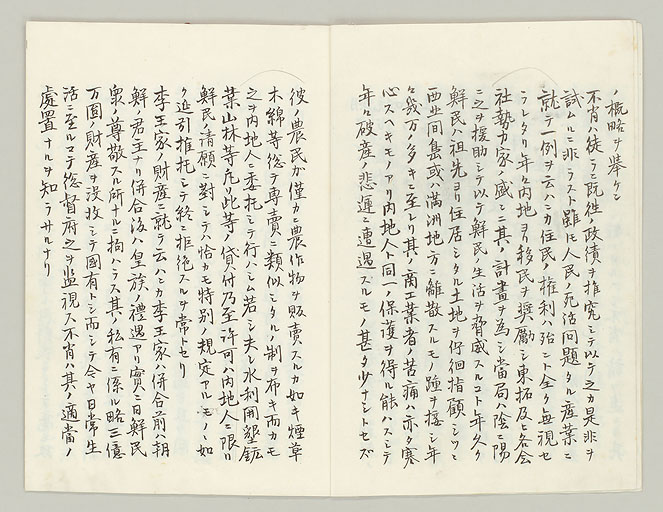 ノ概略ヲ挙ケン
不肖ハ徒ラニ既往ノ政績ヲ推究シテ以テ之カ是非ヲ
試ムルニ非ラスト雖トモ人民ノ死活問題タル産業ニ
就テ一例ヲ云ハンカ住民ノ権利ハ殆ント全ク無視セ
ラレタリ年々内地ヨリ移民ヲ奨励シ東拓及ヒ各会
社勢力家ノ威ニ其ノ計畫ヲ為シ當局ハ陰ニ陽
ニ之ヲ援助シテ以テ鮮民ノ生活ヲ脅威スルコト年久ク
鮮民ハ祖先ヨリ住居シタル土地ヲ佇徊指顧シツヽ
西北间島或ハ満洲地方ニ離散スルモノ踵ヲ接シ年
々幾万ノ多キニ至レリ其ノ商工業者ノ苦痛ハ亦タ寒
心スヘキモノアリ内地人ト同一ノ保護ヲ得ル能ハスシテ
年々破産ノ悲運ニ遭遇スルモノ甚タ少ナシトセズ
彼ノ農民カ僅カニ農作物ヲ販賣スルカ如キ煙草
木綿等總テ専賣ニ類似シタルノ制ヲ布キ而カモ
之ヲ内地人ニ委托シテ行ハシム若シ夫レ水利開墾鉱
業山林等凡ソ此等ノ貸付乃至許可ハ内地人ニ限リ
鮮民ノ請願ニ對シテハ恰カモ特別ノ規定アルモノヽ如
ク延引推托シテ終ニ拒絶スルヲ常トセリ
李王家ノ財産ニ就テ云ハンカ李王家ハ併合前ハ朝
鮮ノ君主ナリ併合後ハ皇族ノ禮遇アリ實ニ日鮮民
衆ノ尊敬スル所ナルニ拘ハラス其ノ私有ニ係ル略三億
万圓ノ財産ヲ没收シテ國有トシ而シテ今ヤ日常生
活ニ至ルマテ総督府之ヲ監視ス不肖ハ其ノ適當ノ
處置ナルヲ知ラサルナリ